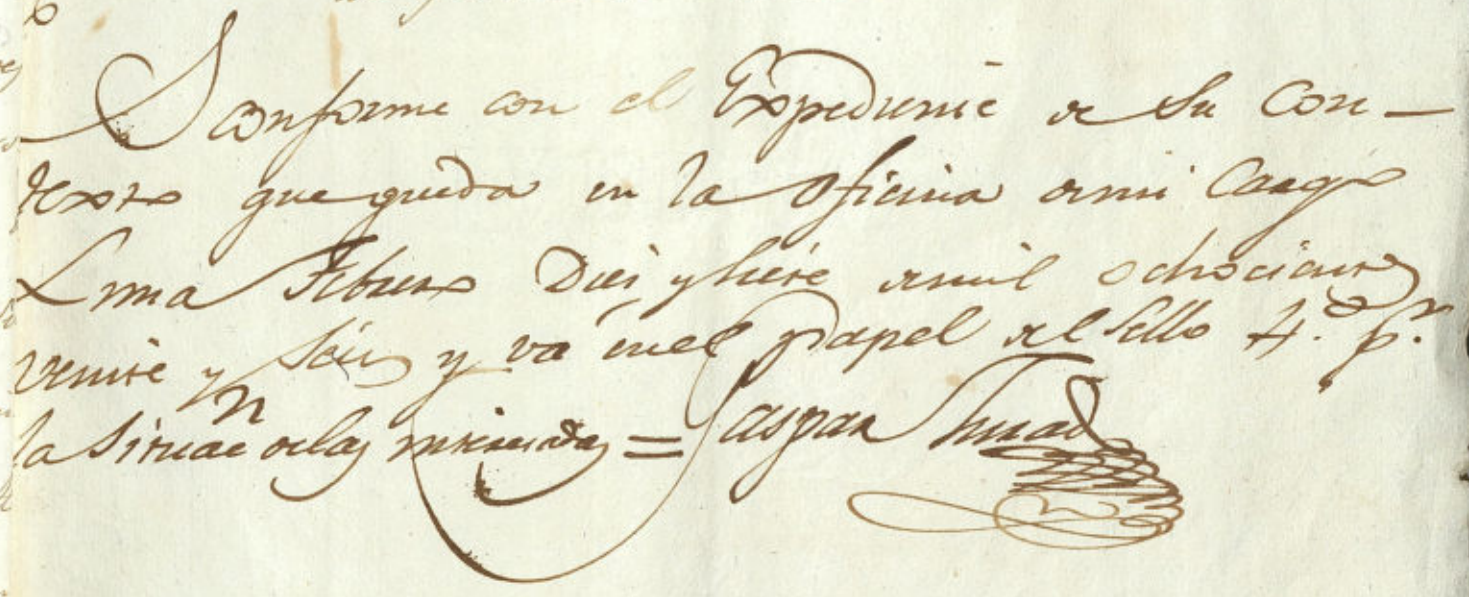 Es conforme con el Expediente de su con-
texto que queda en la oficina de mi cargo
Lima Febrero Diez y siete de mil ochocientos
veinte y seis y va en el papel del sello 4.º p.r
la situac.n de las =Gaspar